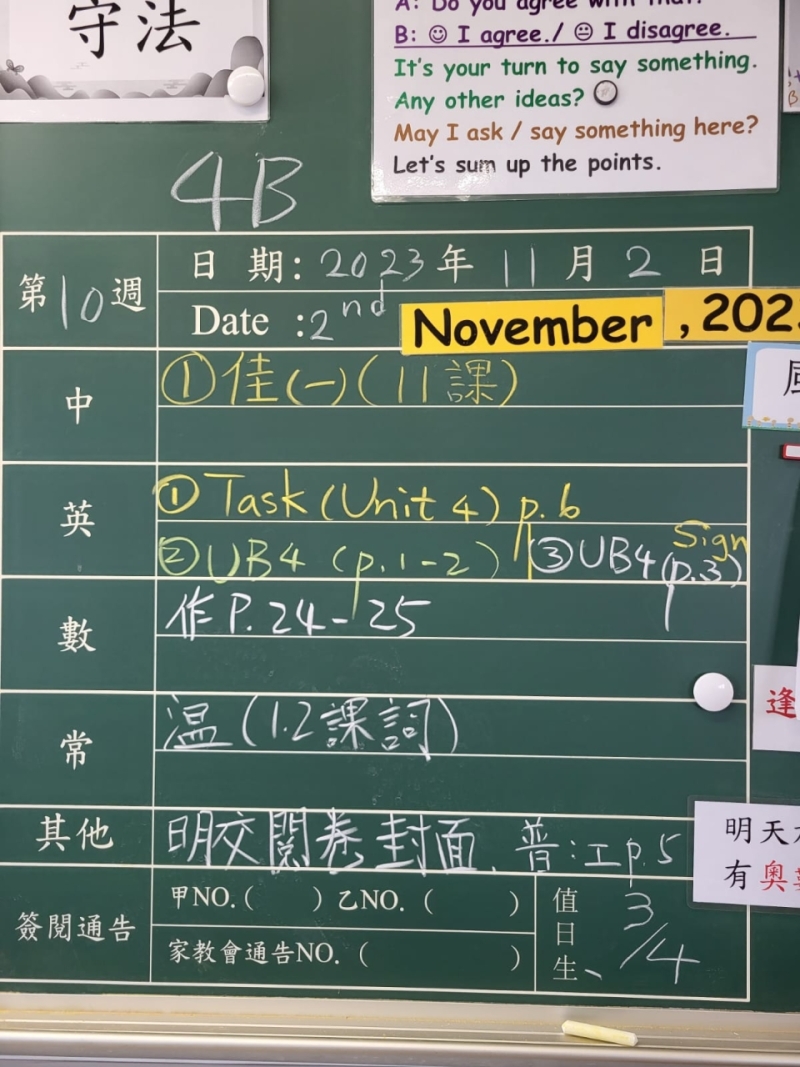 守法
A: Do you agree with that?
B: ☺ I agree. / 😐 I disagree.
It's your turn to say something.
Any other ideas?
May I ask / say something here?
Let's sum up the points.
4B
第10週
日 期: 2023年 11月 2 日
Date : 2nd November , 202
中
①佳(一)(11課)
英
①Task (Unit 4) p.6
②UB4 (p.1-2) ③UB4 (p.3) Sign
數
作P.24-25
常
溫(1.2課詞)
其他
明交閱卷封面、普:工p.5
簽閱通告
甲NO.( ) 乙NO. ( )
家教會通告NO. ( )
值日生、3/4
逢
明天
有奧